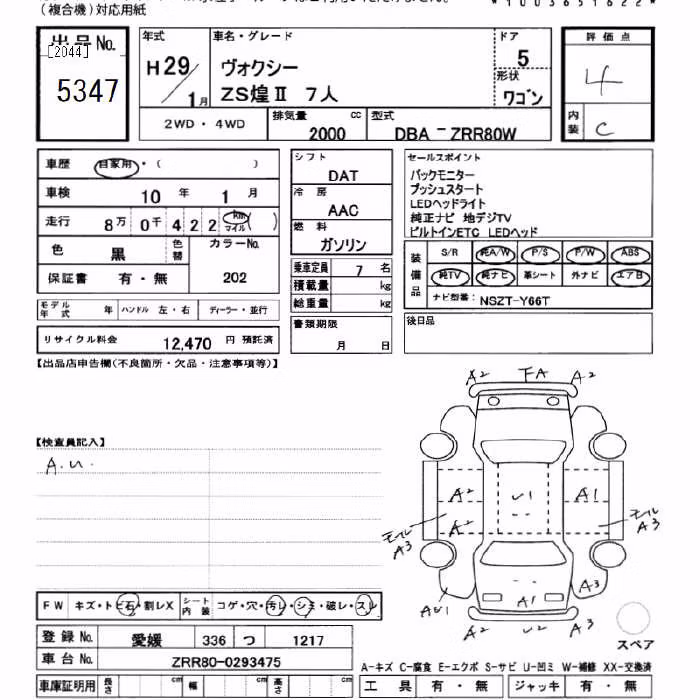 (複合機)対応用紙
*1003651622*
出品No.
[2044]
5347
年式
H29/1月
車名・グレード
ヴォクシー
ZS煌Ⅱ 7人
ドア
5
形状
ワゴン
評価点
4
内装
C
2WD・4WD
排気量
2000 cc
型式
DBA-ZRR80W
車歴 自家用・( )
車検 10年 1月
走行 8万0千422 km マイル ( )
色 黒 色替
カラーNo. 202
保証書 有・無
モデル年式 年 ハンドル 左・右 ディーラー・並行
リサイクル料金 12,470 円 預託済
シフト
DAT
冷房
AAC
燃料
ガソリン
乗車定員 7 名
積載量 kg
総重量 kg
書類期限
月 日
セールスポイント
バックモニター
プッシュスタート
LEDヘッドライト
純正ナビ 地デジTV
ビルトインETC LEDヘッド
装備品
S/R 純A/W P/S P/W ABS
純TV 純ナビ 革シート 外ナビ エアB
ナビ型番: NSZT-Y66T
後日品
【出品店申告欄(不良箇所・欠品・注意事項等)】
【検査員記入】
A.U.
A2 FA A2
A2 U1 A1
A2
モール A3
モール A3
AU1 A1 A3
A2 U2 A3
スペア
FW キズ・トビ石・割レX シート内装 コゲ・穴・汚レ・シミ・破レ・スレ
登録No. 愛媛 336 つ 1217
車台No. ZRR80-0293475
車庫証明用 長さ cm 幅 cm 高さ cm
A-キズ C-腐食 E-エクボ S-サビ U-凹ミ W-補修 XX-交換済
工具 有・無 ジャッキ 有・無